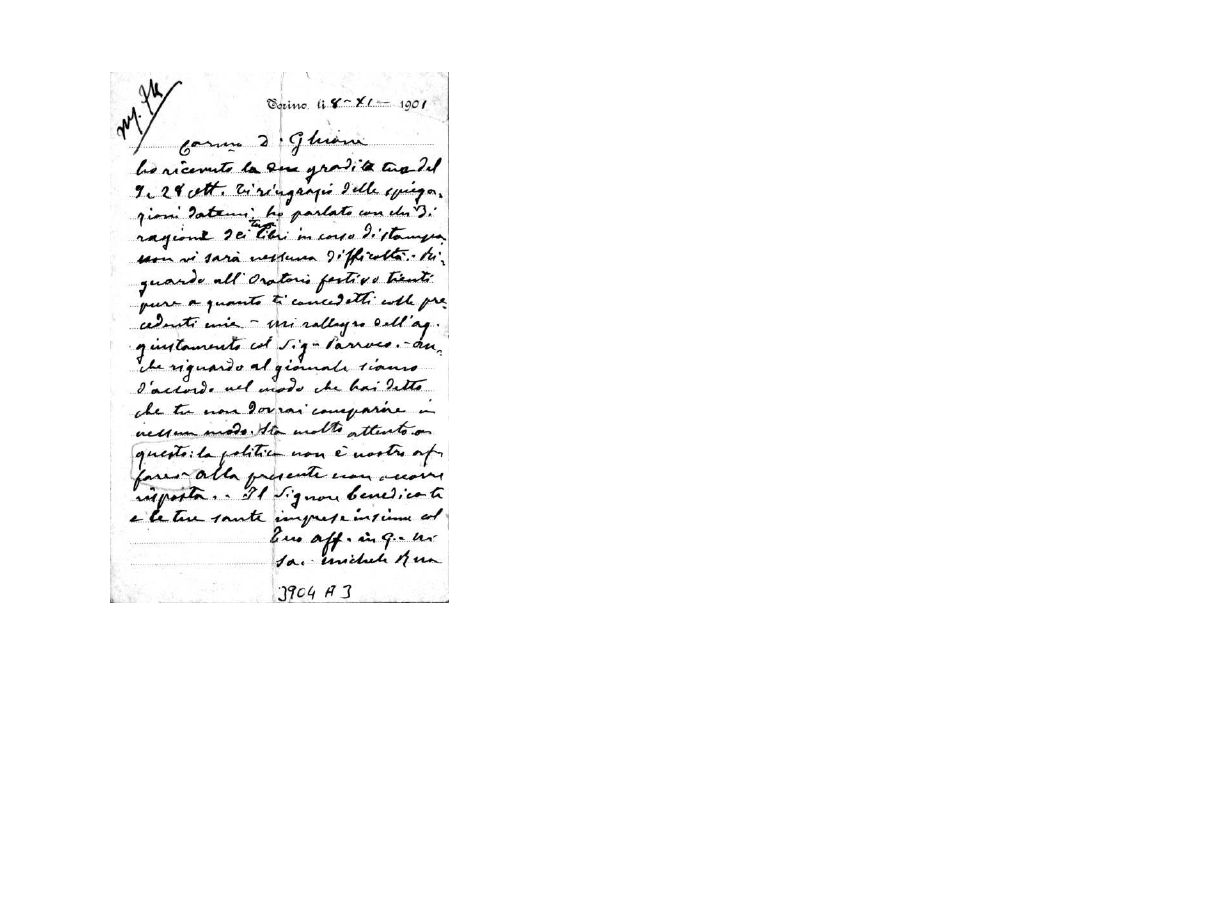 Torino, li 8 - XI - 1901
Carmo D. Ghione
ho ricevuto la gradita tua del
9 e 28 ott. Ti ringrazio delle spiega-
zioni datemi; ho parlato con chi di
ragione dei tuoi libri in corso di stampa
non vi sarà nessuna difficoltà. - Ri-
guardo all'Oratorio festivo tienti
pure a quanto ti concedetti colle pre
cedenti mie - mi rallegro dell'ag-
giustamento col Sig. Parroco. - An-
che riguardo al giornale siamo
d'accordo nel modo che hai detto
che tu non dovrai comparire in
nessun modo. Sta molto attento a
questo: la politica non è nostro af-
fare - alla presente non occorre
risposta. - Il Signore benedica te
e le tue sante imprese insieme col
Tuo aff. in G. M.
Sac. Michele Rua
3904 A 3